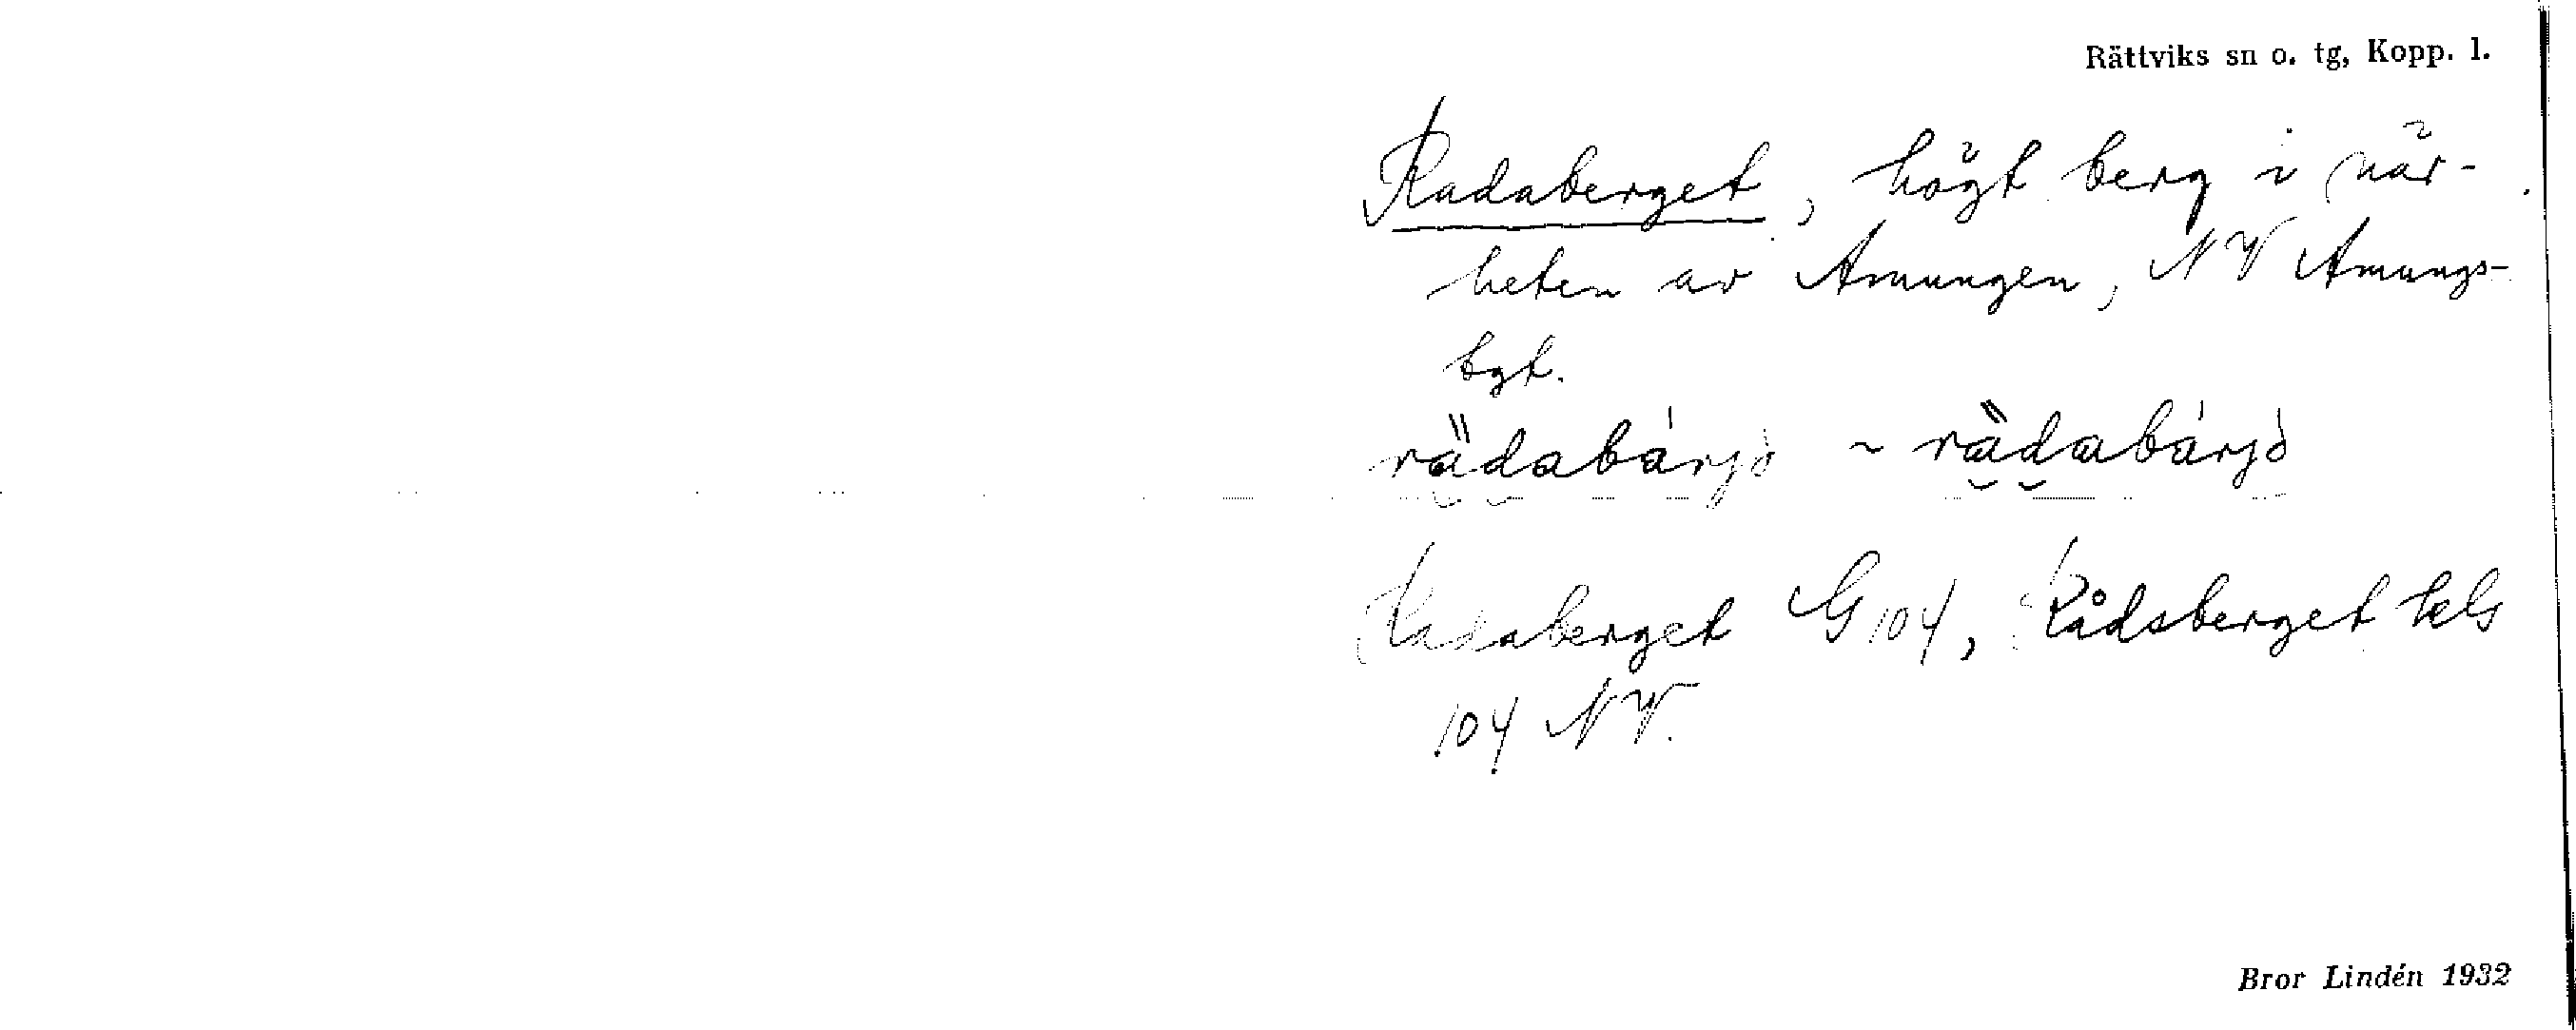 Rättviks sn o. tg, Kopp. l.
Radaberget, högt berg i när-
heten av Amungen, NV Amungs-
bgt.
rädabárjò ~ rädabárjò
Radaberget G 104, Rådsberget
104 NV.
Bror Lindén 1932